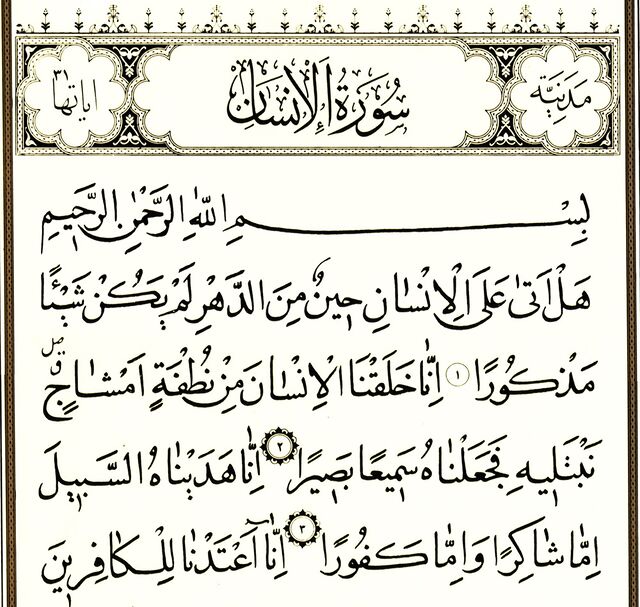 مدنية
سُورَةُ الْإِنْسَانِ
اياتها ٣١
بِسْمِ اللّٰهِ الرَّحْمٰنِ الرَّحٖيمِ
هَلْ اَتٰى عَلَى الْاِنْسَانِ حٖينٌ مِنَ الدَّهْرِ لَمْ يَكُنْ شَيْـًٔا
مَذْكُورًا ١ اِنَّا خَلَقْنَا الْاِنْسَانَ مِنْ نُطْفَةٍ اَمْشَاجٍ قصلى
نَبْتَلٖيهِ فَجَعَلْنَاهُ سَمٖيعًا بَصٖيرًا ٢ اِنَّا هَدَيْنَاهُ السَّبٖيلَ
اِمَّا شَاكِرًا وَاِمَّا كَفُورًا ٣ اِنَّٓا اَعْتَدْنَا لِلْكَافِرٖينَ